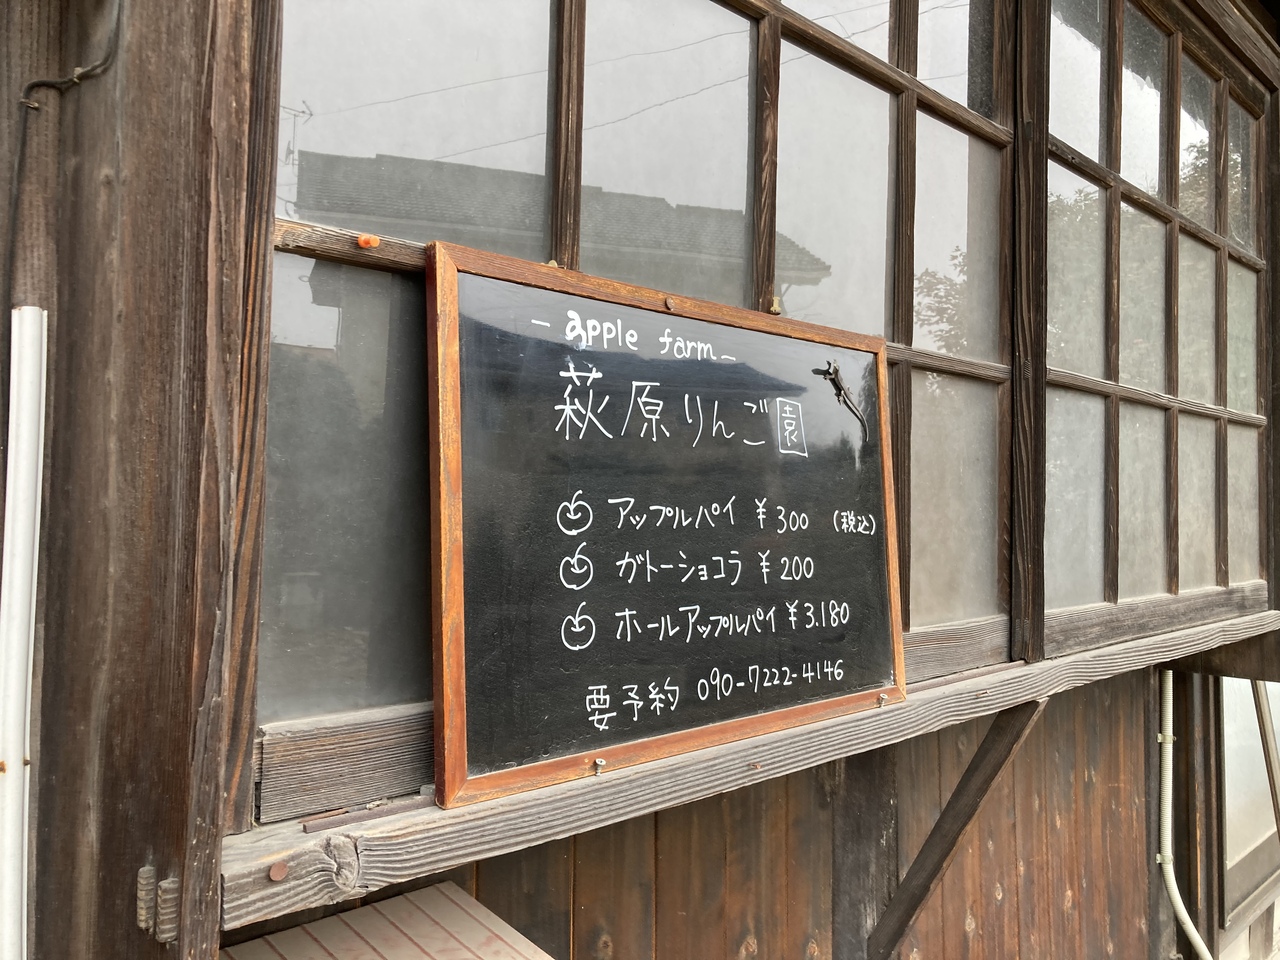 - apple farm -
萩原りんご園
アップルパイ ¥300 (税込)
ガトーショコラ ¥200
ホールアップルパイ ¥3.180
要予約 090-7222-4146